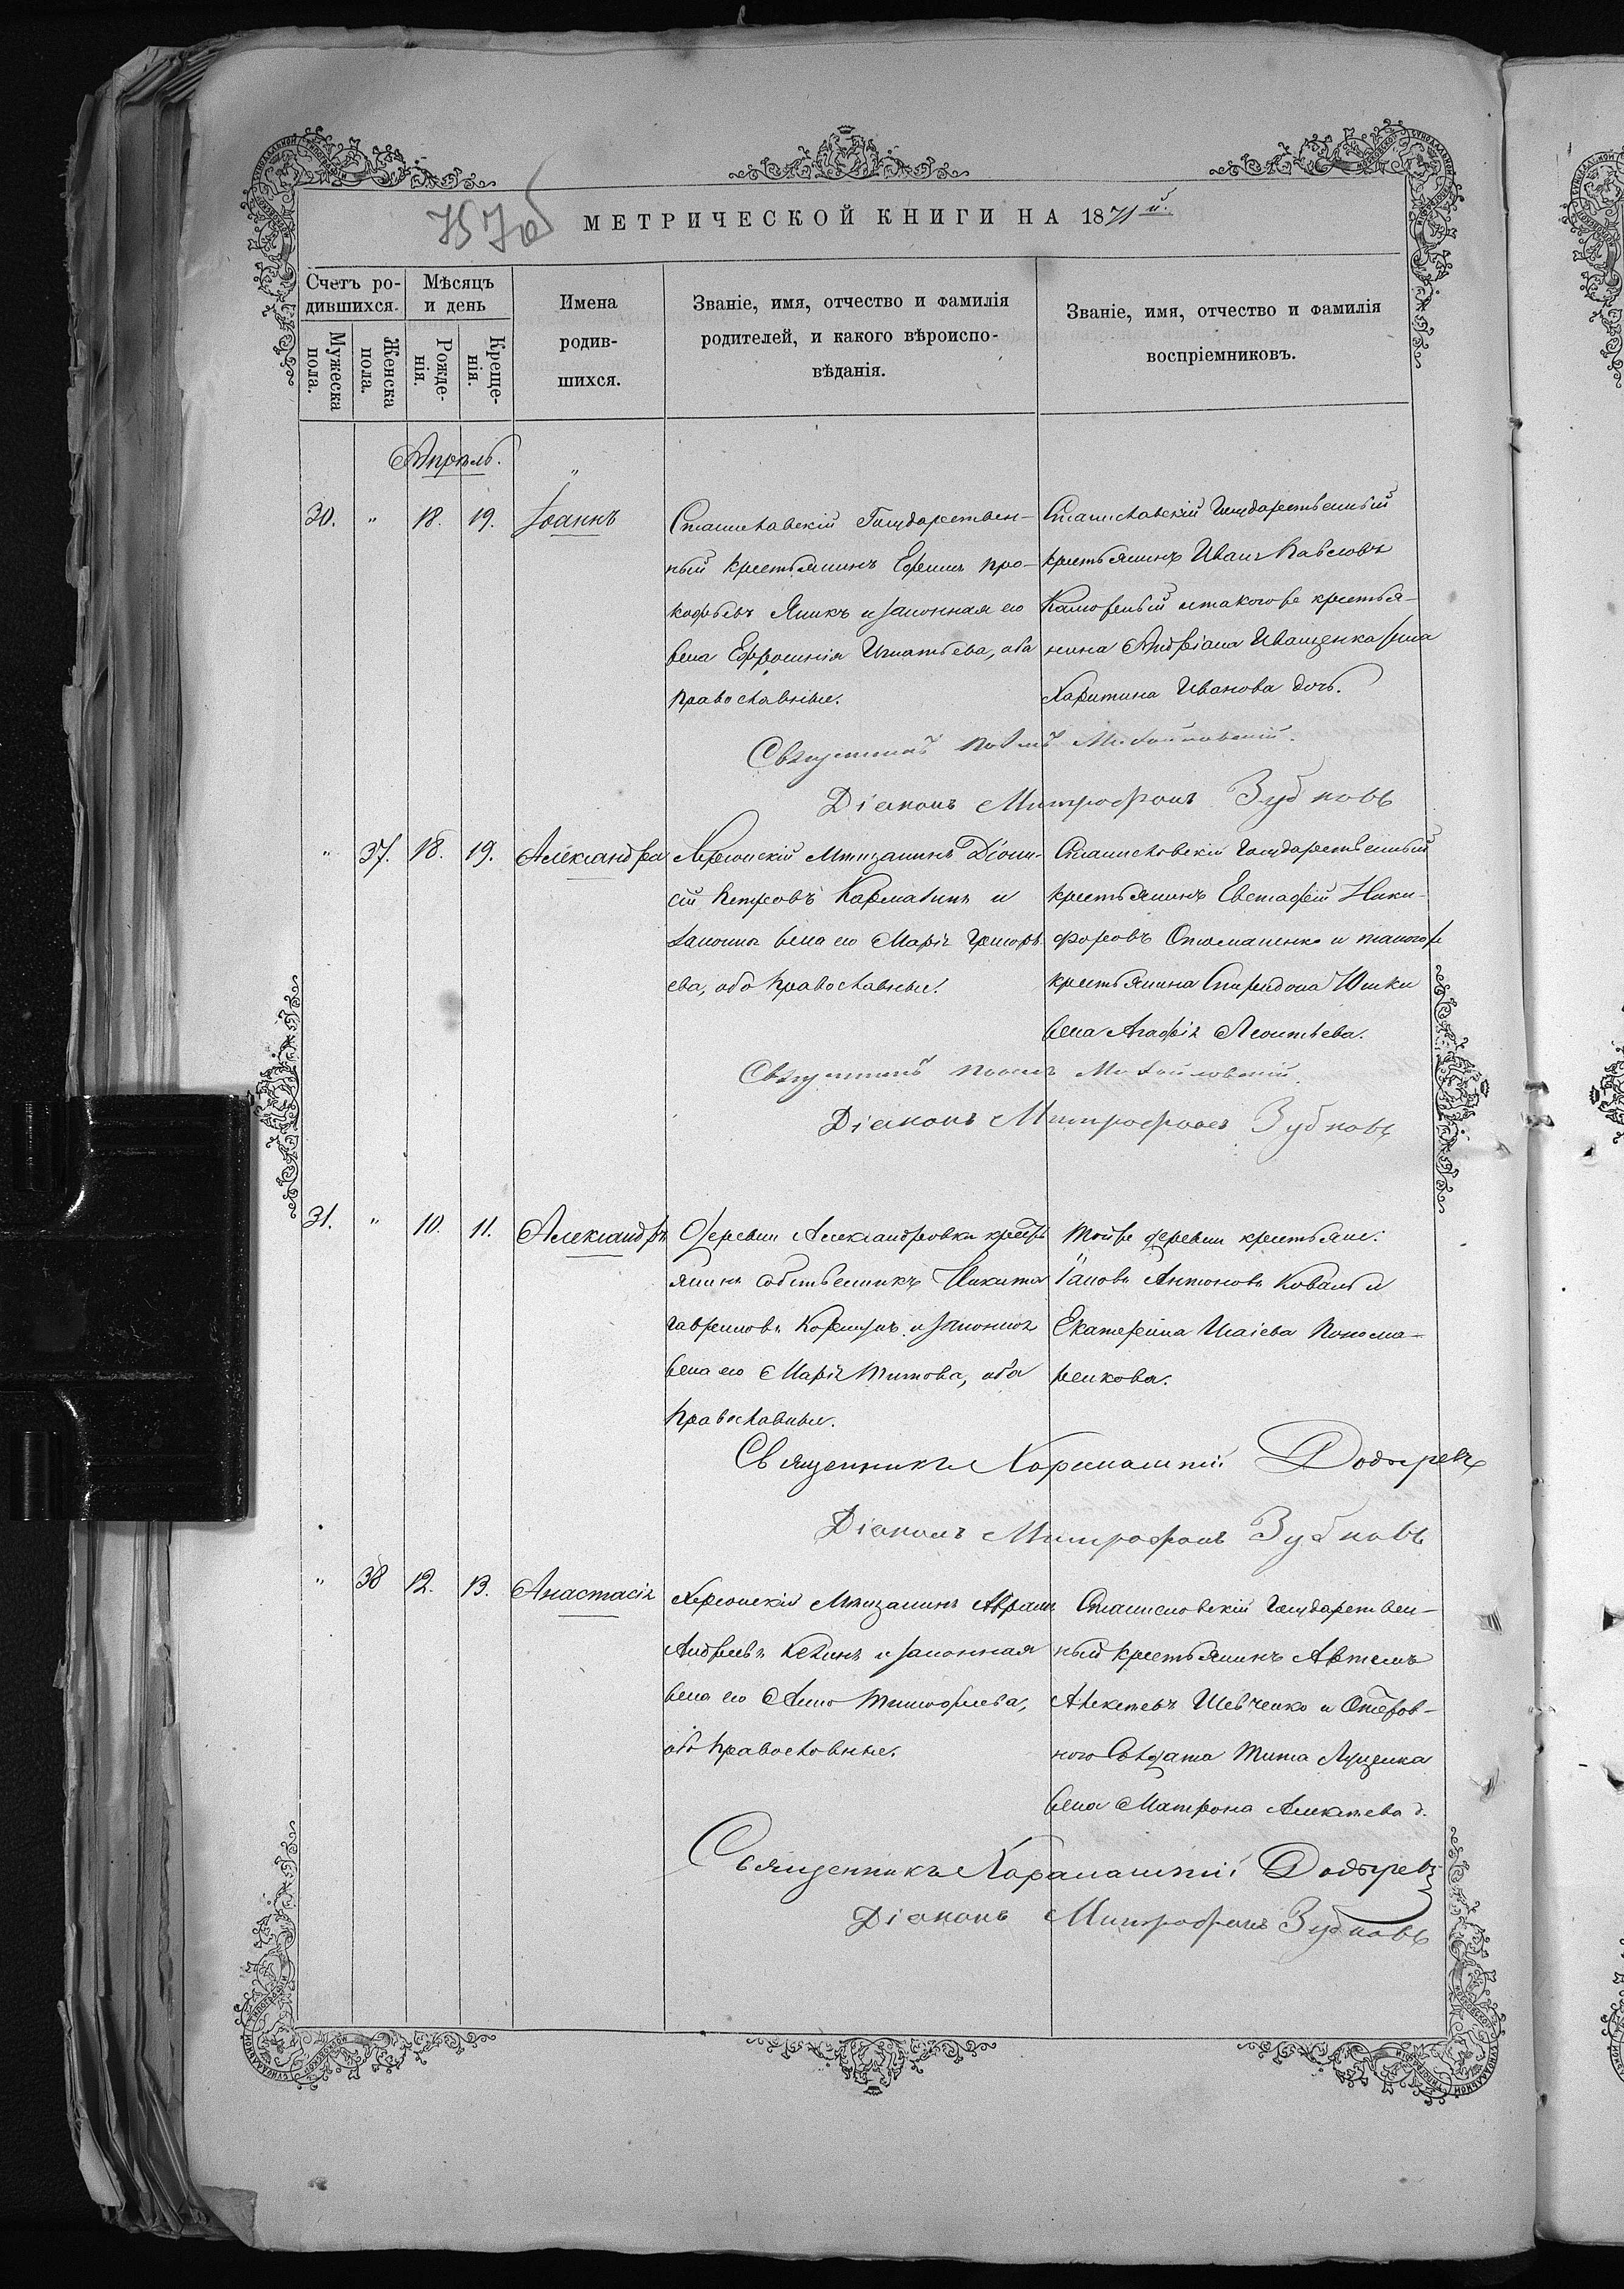 757об
МЕТРИЧЕСКОЙ КНИГИ НА 1871й.
Счетъ ро-
дившихся.
Мужеска
пола.
Женска
пола.
Мѣсяцъ
и день
Рожде-
нія.
Креще-
нія.
Имена
родив-
шихся.
Званіе, имя, отчество и фамилія
родителей, и какого вѣроиспо-
вѣданія.
Званіе, имя, отчество и фамилія
воспріемниковъ.
Апрѣль.
30. " 18. 19. Іоаннъ
Станиславскій Государствен-
ный крестьянинъ Ефимъ Про-
кофьевъ Яникъ и законная его
жена Ефросинія Игнатьева, оба
православные.
Станиславскій Государственный
крестьянинъ Иванъ Павловъ
и такогоже крестья-
нина Андріана Иващенка жена
Харитина Иванова дочь.
Священникъ Михайловскій.
Діаконъ Митрофанъ Зубковъ
" 37. 18. 19. Александра
Херсонскій Мѣщанинъ Діони-
сій Петровъ и
законная жена его Марія Григорь-
ева, оба православные.
Станиславскій Государственный
крестьянинъ Евстафій Ники-
форовъ и такогоже
крестьянина Спиридона Юшки
жена Агафія Леонтьева.
Священникъ Михайловскій.
Діаконъ Митрофанъ Зубковъ
31. " 10. 11. Александръ
Деревни Александровки кресть-
янинъ собственникъ Никита
Гавриловъ и законная
жена его Марія Титова, оба
православные.
Тойже деревни крестьяне:
Іаковъ Антоновъ Коваль и
Екатерина Исаіева Понома-
ренкова.
Священникъ Харлампій
Діаконъ Митрофанъ Зубковъ
" 38 12. 13. Анастасія
Херсонскій Мѣщанинъ Аврамъ
Андреевъ и законная
жена его Анна Тимофеева,
оба православные.
Станиславскій Государствен-
ный крестьянинъ Артемъ
Шевченко и
Солдата Тита Луценка
жена Матрона Алексѣева д.
Священникъ Харлампій
Діаконъ Митрофанъ Зубковъ